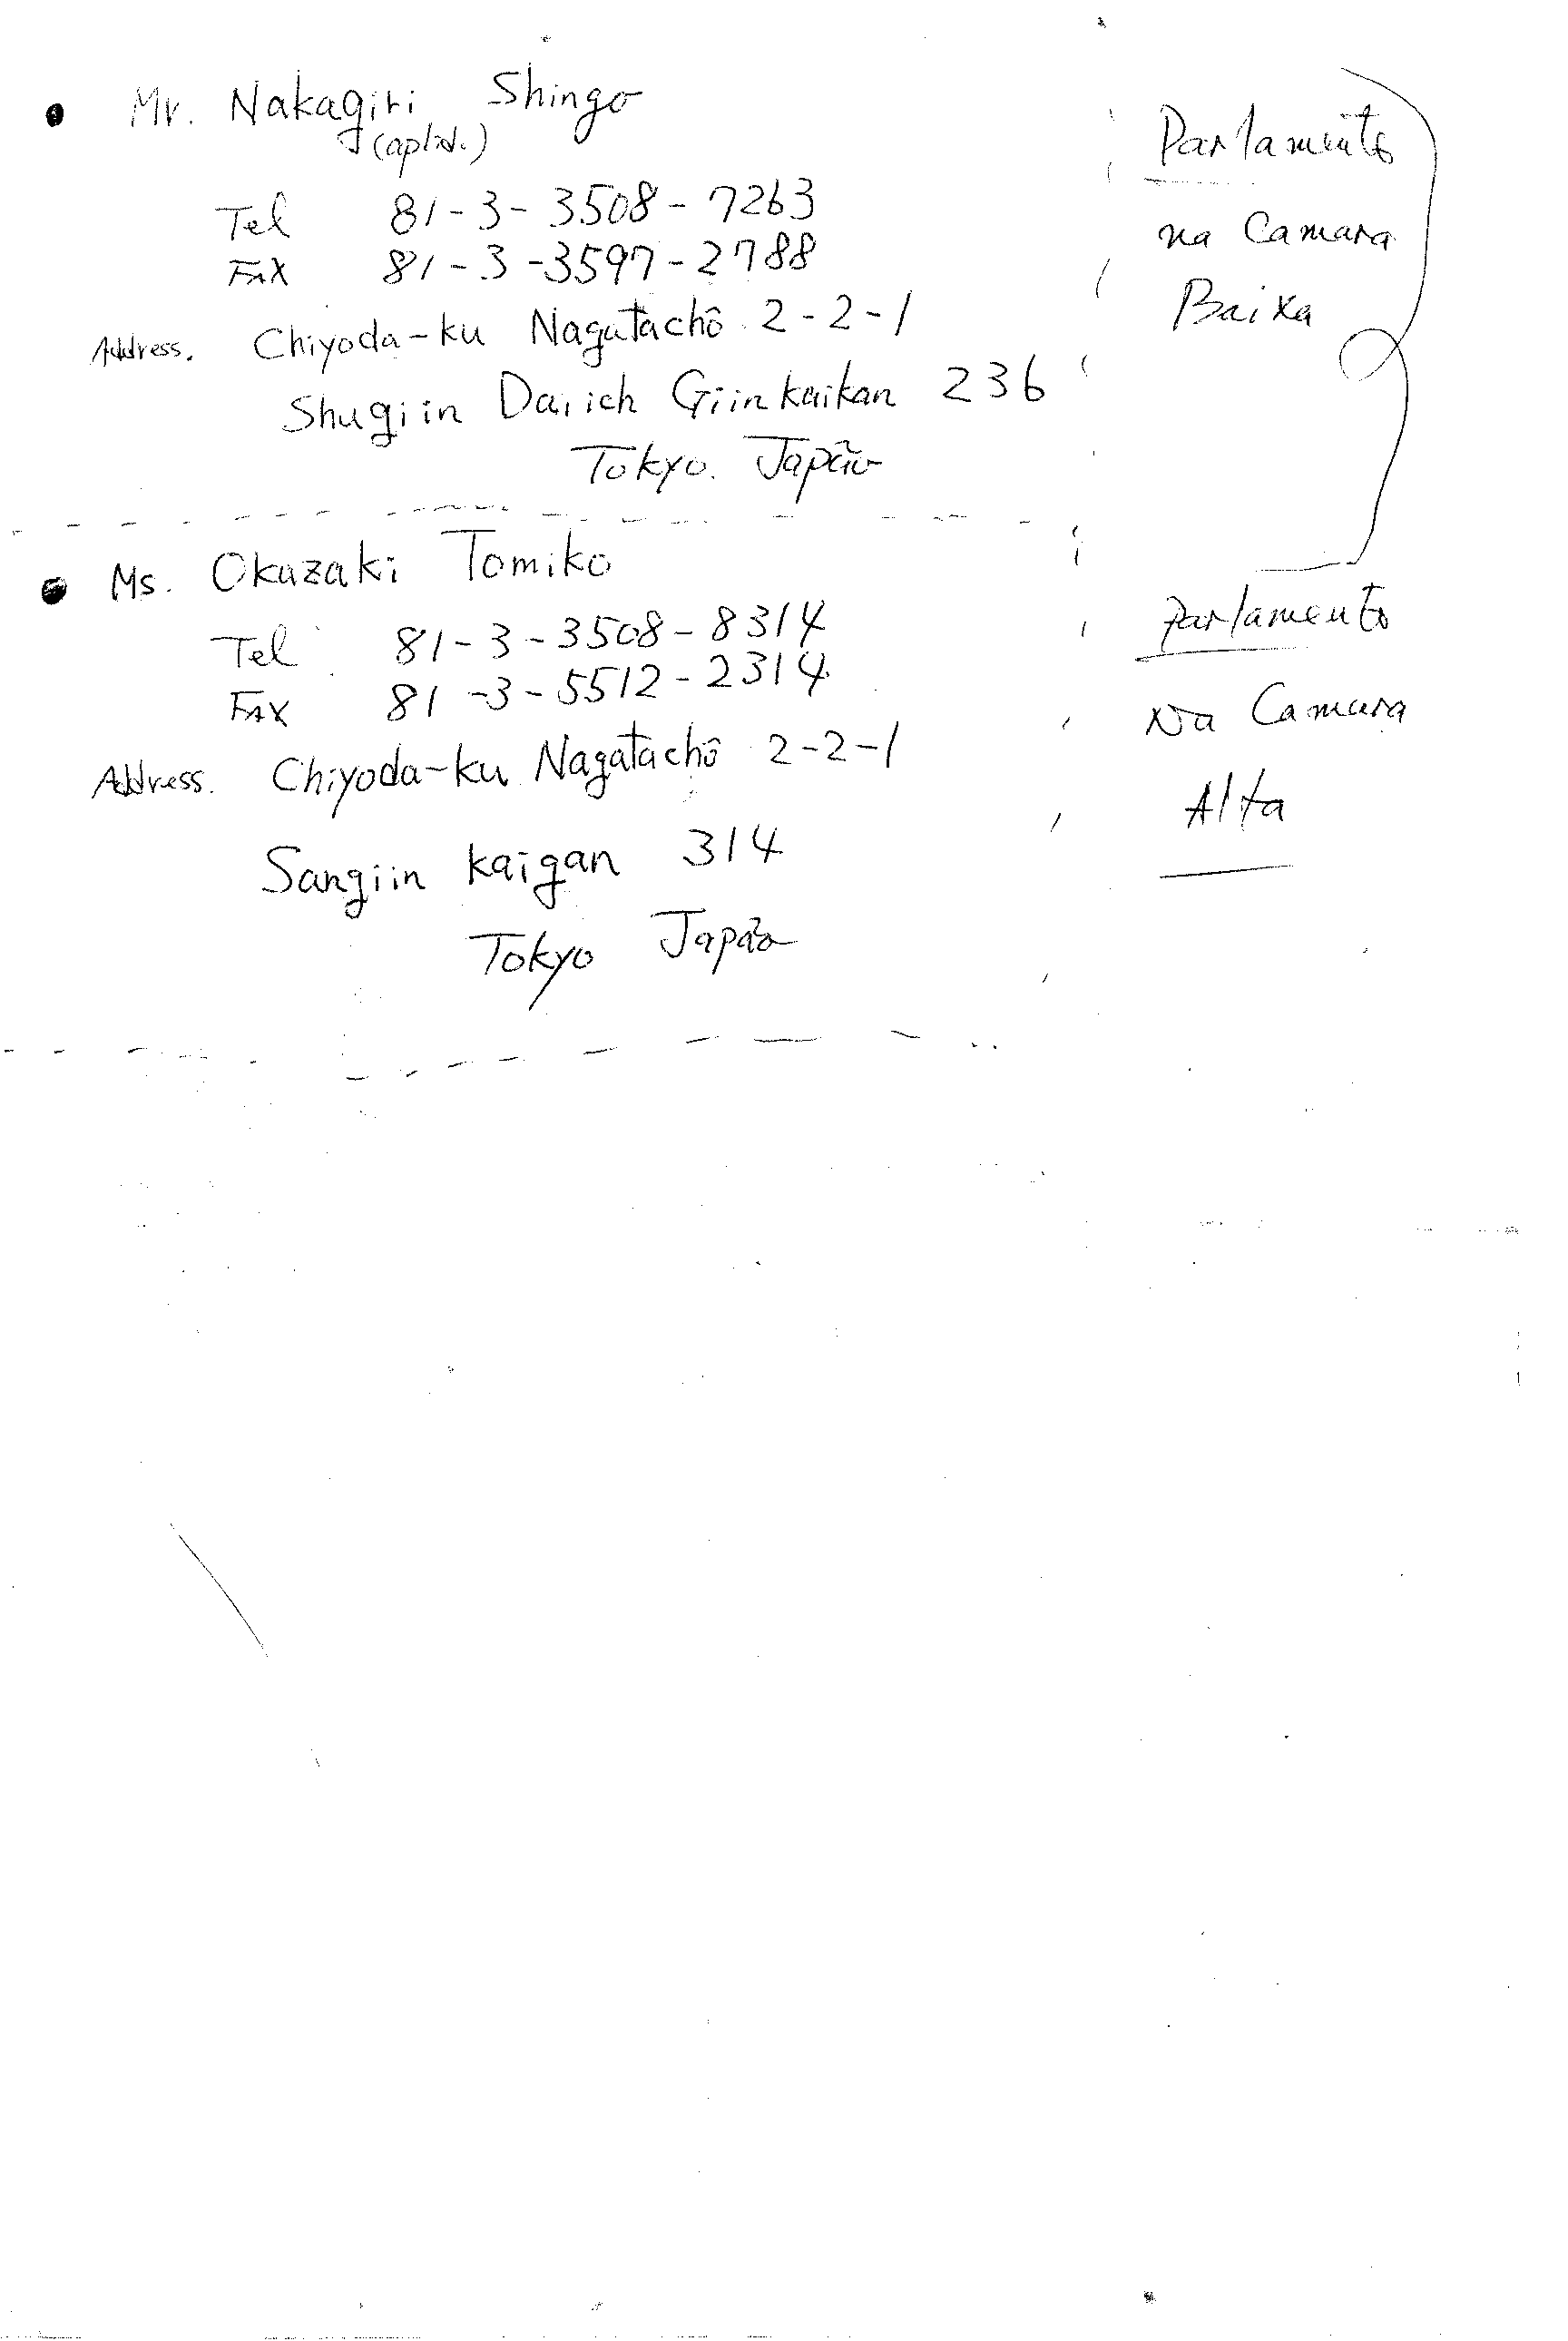 Mr. Nakagiri Shingo
Tel 81-3-3508-7263
FAX 81-3-3597-2788
Address. Chiyoda-ku Nagatachô 2-2-1
Shugiin Daiich Giinkaikan 236
Tokyo. Japão
Parlamento
na Camara
Baixa
Ms. Okazaki Tomiko
Tel 81-3-3508-8314
FAX 81-3-5512-2314
Address. Chiyoda-ku Nagatachô 2-2-1
Sangiin kaigan 314
Tokyo Japão
Parlamento
Na Camara
Alta